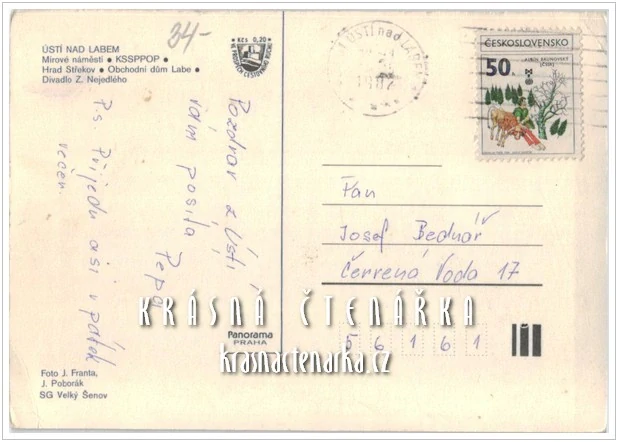 ÚSTÍ NAD LABEM
Mírové náměstí ● KSSPPOP ●
Hrad Střekov ● Obchodní dům Labe ●
Divadlo Z. Nejedlého
34-
Kčs 0,20
ÚSTÍ nad LABEM
1982
ČESKOSLOVENSKO
50
ALBÍN BRUNOVSKÝ
Pozdrav z Ústí
vám posílá
Pepa
Ps. Přijedu asi v pátek
večer.
Pan
Josef Bednář
Červená Voda 17
56161
KRÁSNÁ ČTENÁŘKA
krasnactenarka.cz
Panorama
PRAHA
Foto J. Franta,
J. Poborák
SG Velký Šenov